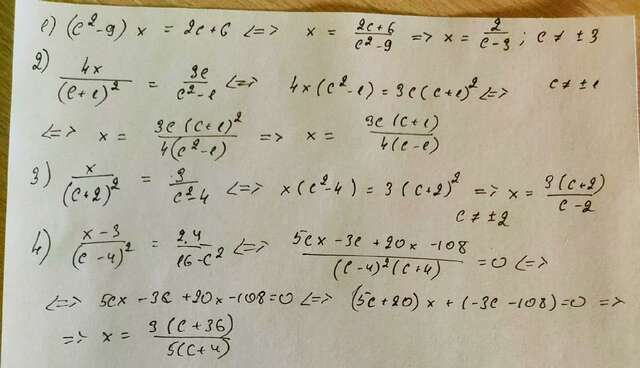 1) (c²-9) x = 2c+6 <=> x = \frac{2c+6}{c²-9} => x = \frac{2}{c-3}; c ≠ ±3
2) \frac{4x}{(c+1)²} = \frac{3c}{c²-1} <=> 4x(c²-1) = 3c(c+1)² <=> c ≠ ±1
<=> x = \frac{3c(c+1)²}{4(c²-1)} => x = \frac{3c(c+1)}{4(c-1)}
3) \frac{x}{(c+2)²} = \frac{3}{c²-4} <=> x(c²-4) = 3(c+2)² => x = \frac{3(c+2)}{c-2}
c ≠ ±2
4) \frac{x-3}{(c-4)²} = \frac{2,4}{16-c²} <=> \frac{5cx-3c+20x-108}{(c-4)²(c+4)} = 0 <=>
<=> 5cx-3c+20x-108=0 <=> (5c+20)x+(-3c-108)=0 =>
=> x = \frac{3(c+36)}{5(c+4)}